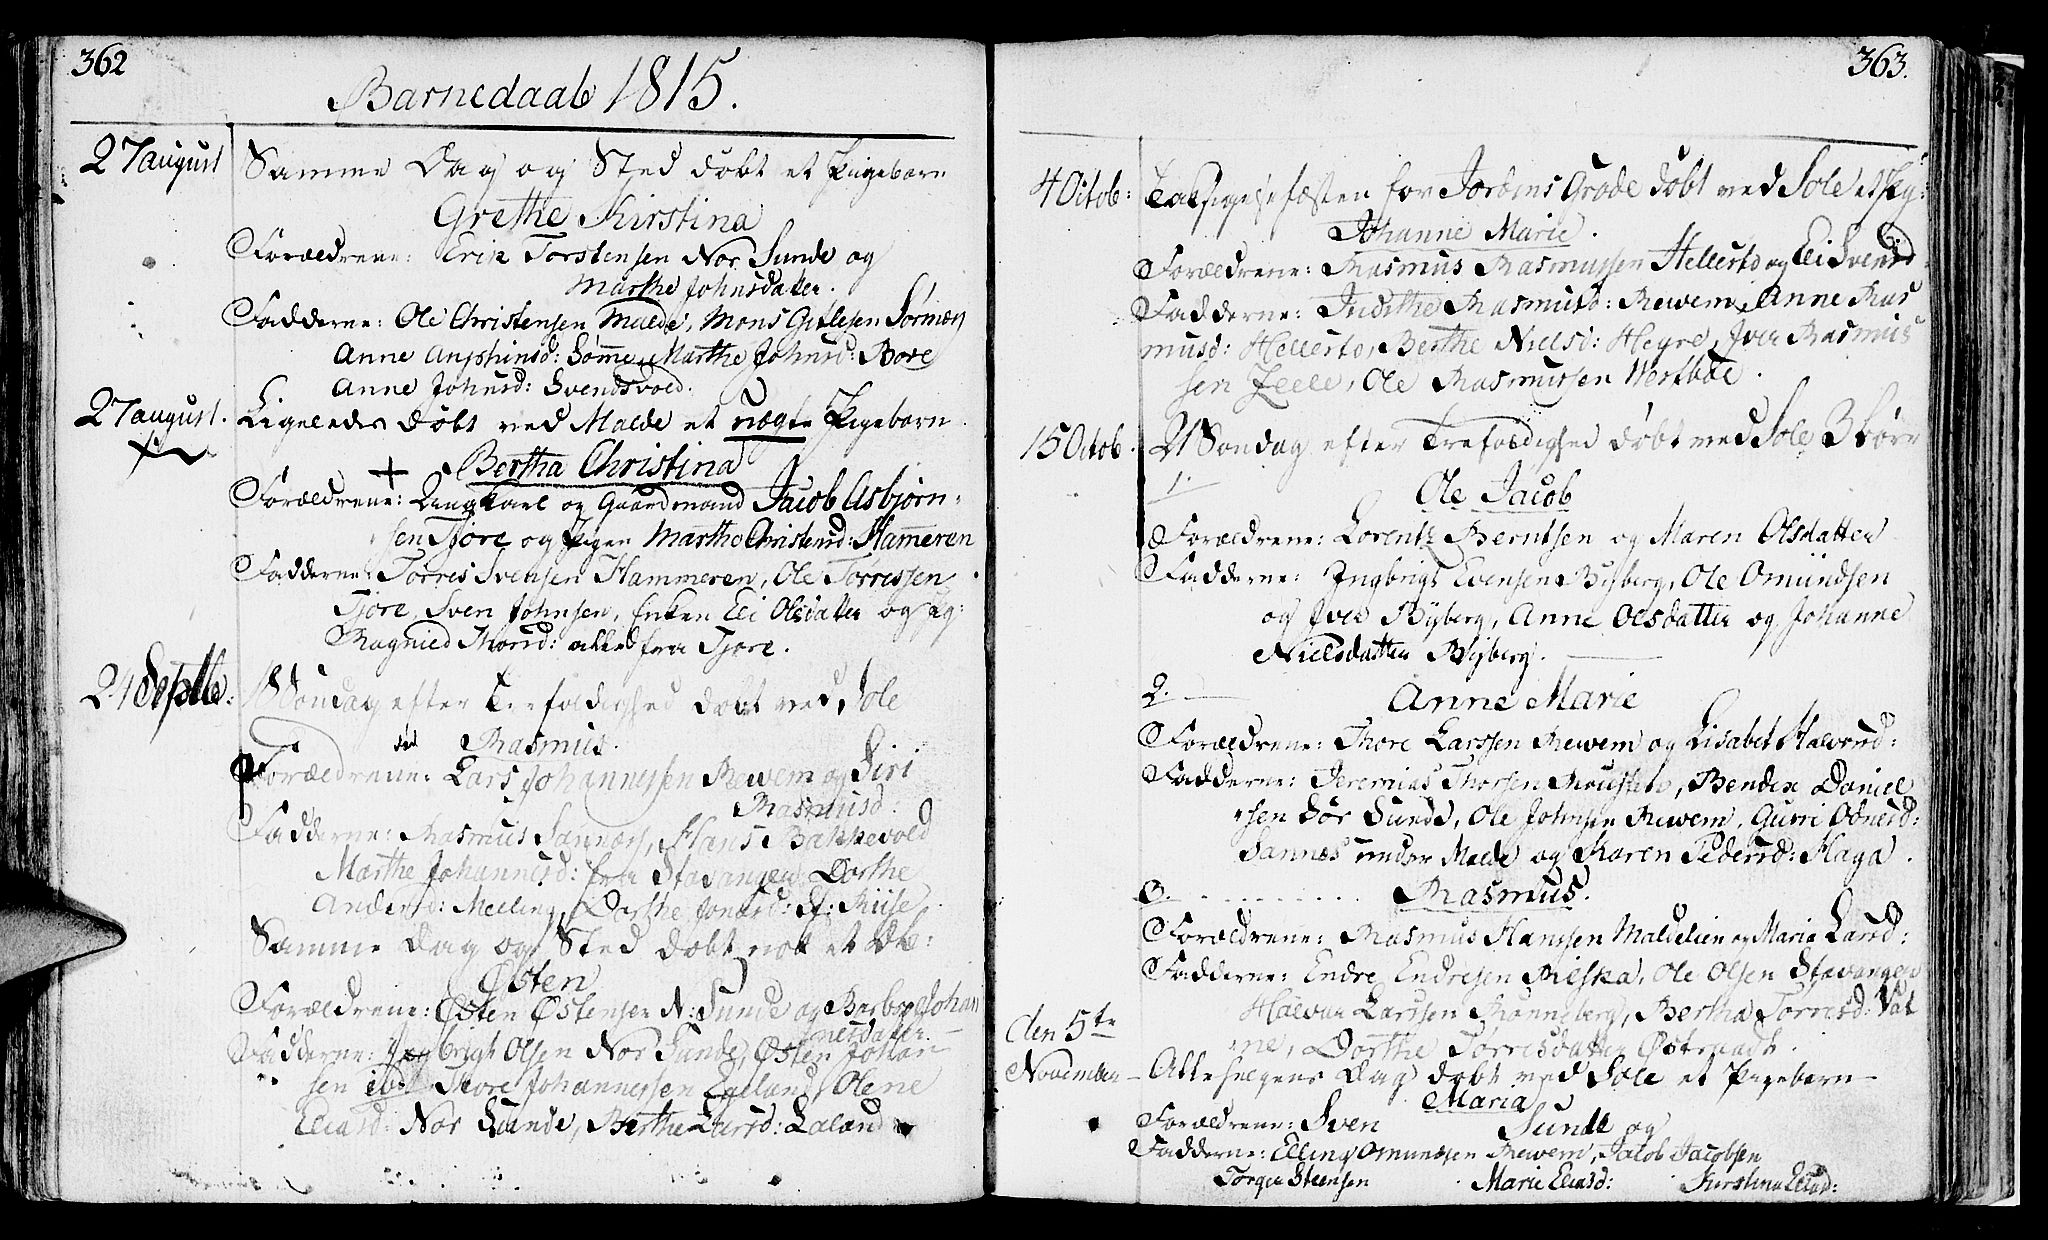 362
Barnedaab 1815.
27 august Samme Dag og Sted døbt et Pigebarn
Grethe Kirstina
Forældrene: Erik Torstensen Nor Sunde og
Marthe Johnsdatter.
Fadderne: Ole Christensen Malde, Mons Gitlesen Sørnæs
Anne Anfhinsd: Sømme, Marthe Johnsd: Bore
Anne Johnsd: Svendsvold.
27 august. Ligeledes døbt ved Malde et uægte Pigebarn
Bertha Christina
Forældrene: Ungkarl og Gaardmand Jacob Asbjørn-
sen Tjore og Pigen Martha Christensd: Hammeren
Fadderne: Torres Svensen Hammeren, Ole Torressen
Tjore, Sven Johnsen, Enken Eli Olsdatter og Pig:
Ragnied Thorsd: alle fra Tjore.
24 Septbr: Søndag efter Trefoldighed døbt ved Sole
død Rasmus.
Forældrene: Lars Johannessen Rewem og Siri
Rasmusd:
Fadderne: Rasmus Sannæs, Hans Bakkevold
Marthe Johannesd: fra Stavanger, Dorthe
Andersd: Melling, Dorthe Jonasd: St: Riise.
Samme Dag og Sted døbt nok et Dr:
Østen
Forældrene: Østen Østensen N: Sunde og Barbro Johan
nesdatter
Fadderne: Ingbrigt Olsen Nor Sunde, Østen Johan-
sen ibd Thore Johannessen Lalland, Olene
Eliasd: Nor Sunde, Berthe Larsd: Laland
363.
4 Octob: Taksigelsefæsten for Jordens Grøde døbt ved Sole et Pig:
Johanne Marie.
Forældrene: Rasmus Rasmussen Hellestø og Eli Svensd
Fadderne: Judithe Rasmusd: Rewem, Anne Ras
musd: Hellestø, Berthe Nielsd: Hegre, Iver Rasmus
sen Zeele, Ole Rasmussen Westbøe.
15 Octob. 21 Søndag efter Trefoldighed døbt ved Sole 3 børn
1. Ole Jacob
Forældrene: Lorentz Berntsen og Maren Olsdatter
Fadderne: Ingbrigt Evensen Byberg, Ole Omundsen
og Iver Byberg, Anne Olsdatter og Johanne
Nielsdatter Byberg.
2. Anne Marie
Forældrene: Thore Larssen Rewem og Lisabet Halvorsd:
Fadderne: Jeremias Thorsen, Bendix Daniel
sen Sør Sunde, Ole Johnsen Rewem, Gurri Odnesd:
Sannes under Malde og Karen Pedersd: Haga.
3. Rasmus.
Forældrene: Rasmus Hanssen Maldelien og Maria Larsd:
Fadderne: Endre Endresen Riska, Ole Olsen Stavanger
Halvor Larssen Rønneberg, Bertha Torresd: Vat
ne, Dorthe Torrisdatter Østraadt.
den 5te
November Alle helgens Dag døbt ved Sole et Pigebarn
Maria
Forældrene: Sven Sunde og
Fadderne: Elling Omundsen Rewem, Jacob Jacobsen
Torger Steensen Marie Eliasd: Kirstina Eliasd: